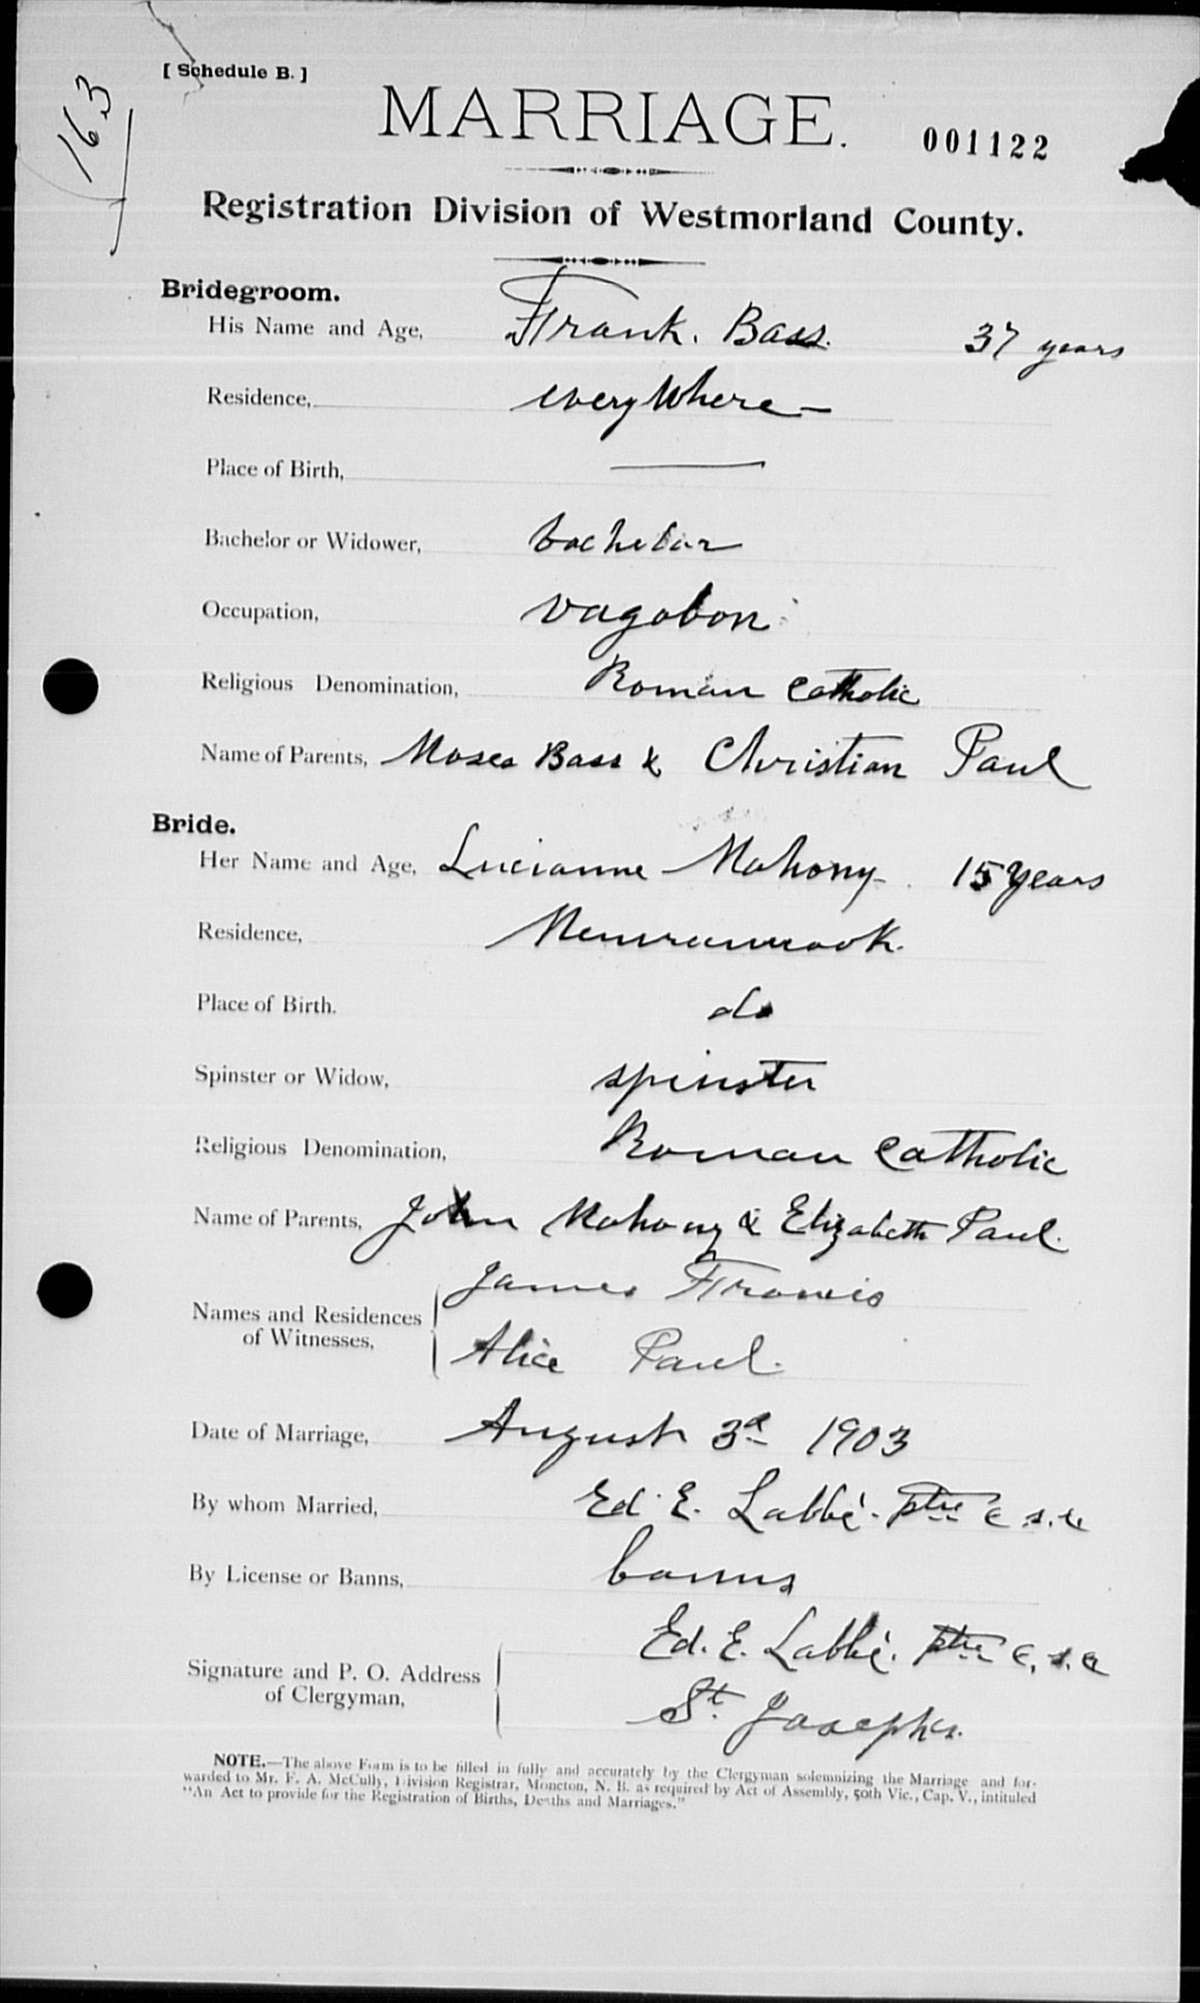 163
[ Schedule B. ]
MARRIAGE.
001122
Registration Division of Westmorland County.
Bridegroom.
His Name and Age, Frank. Bass. 37 years
Residence, every Where —
Place of Birth, —
Bachelor or Widower, bachelor
Occupation, vagabon
Religious Denomination, Roman Catholic
Name of Parents, Moses Bass & Christian Paul
Bride.
Her Name and Age, Lucianne Mahony 15 years
Residence, Memramcook.
Place of Birth. do
Spinster or Widow, spinster
Religious Denomination, Roman Catholic
Name of Parents, John Mahony & Elizabeth Paul.
Names and Residences of Witnesses, James Francis
Alice Paul.
Date of Marriage, August 3d 1903
By whom Married, Ed. E. Labbé. ptre c.s.c
By License or Banns, banns
Signature and P. O. Address of Clergyman, Ed. E. Labbé. ptre c.s.c
St. Josephs.
NOTE.—The above Form is to be filled in fully and accurately by the Clergyman solemnizing the Marriage and for-
warded to Mr. F. A. McCully, Division Registrar, Moncton, N. B. as required by Act of Assembly, 50th Vic., Cap. V., intituled
"An Act to provide for the Registration of Births, Deaths and Marriages."